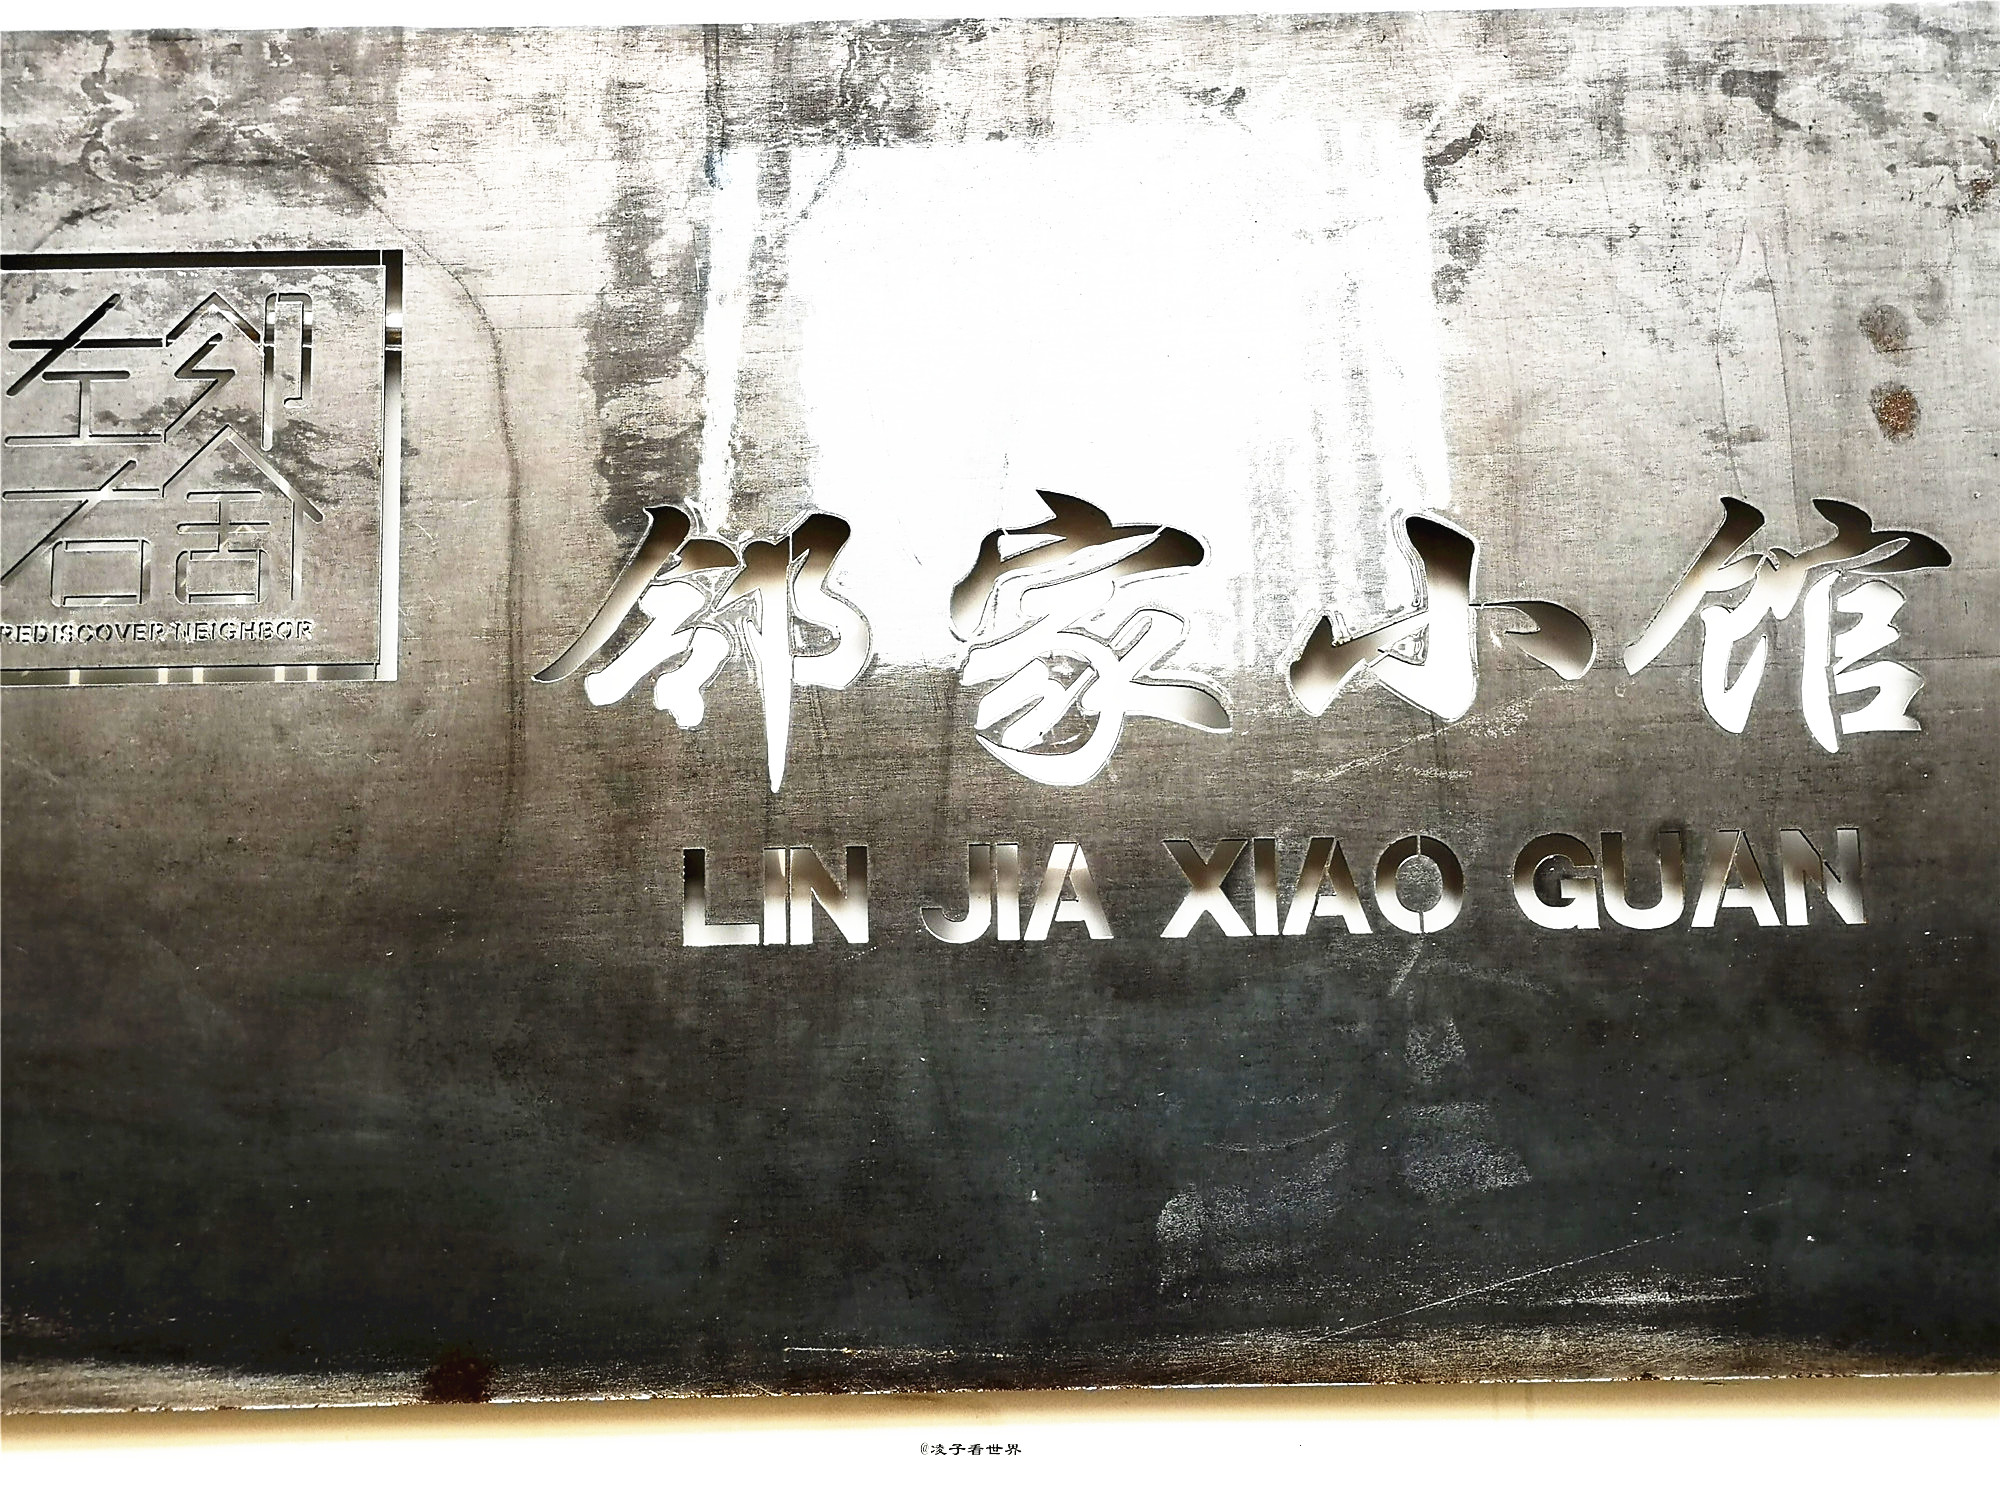 左邻
右舍
REDISCOVER NEIGHBOR
邻家小馆
LIN JIA XIAO GUAN
@凌子看世界